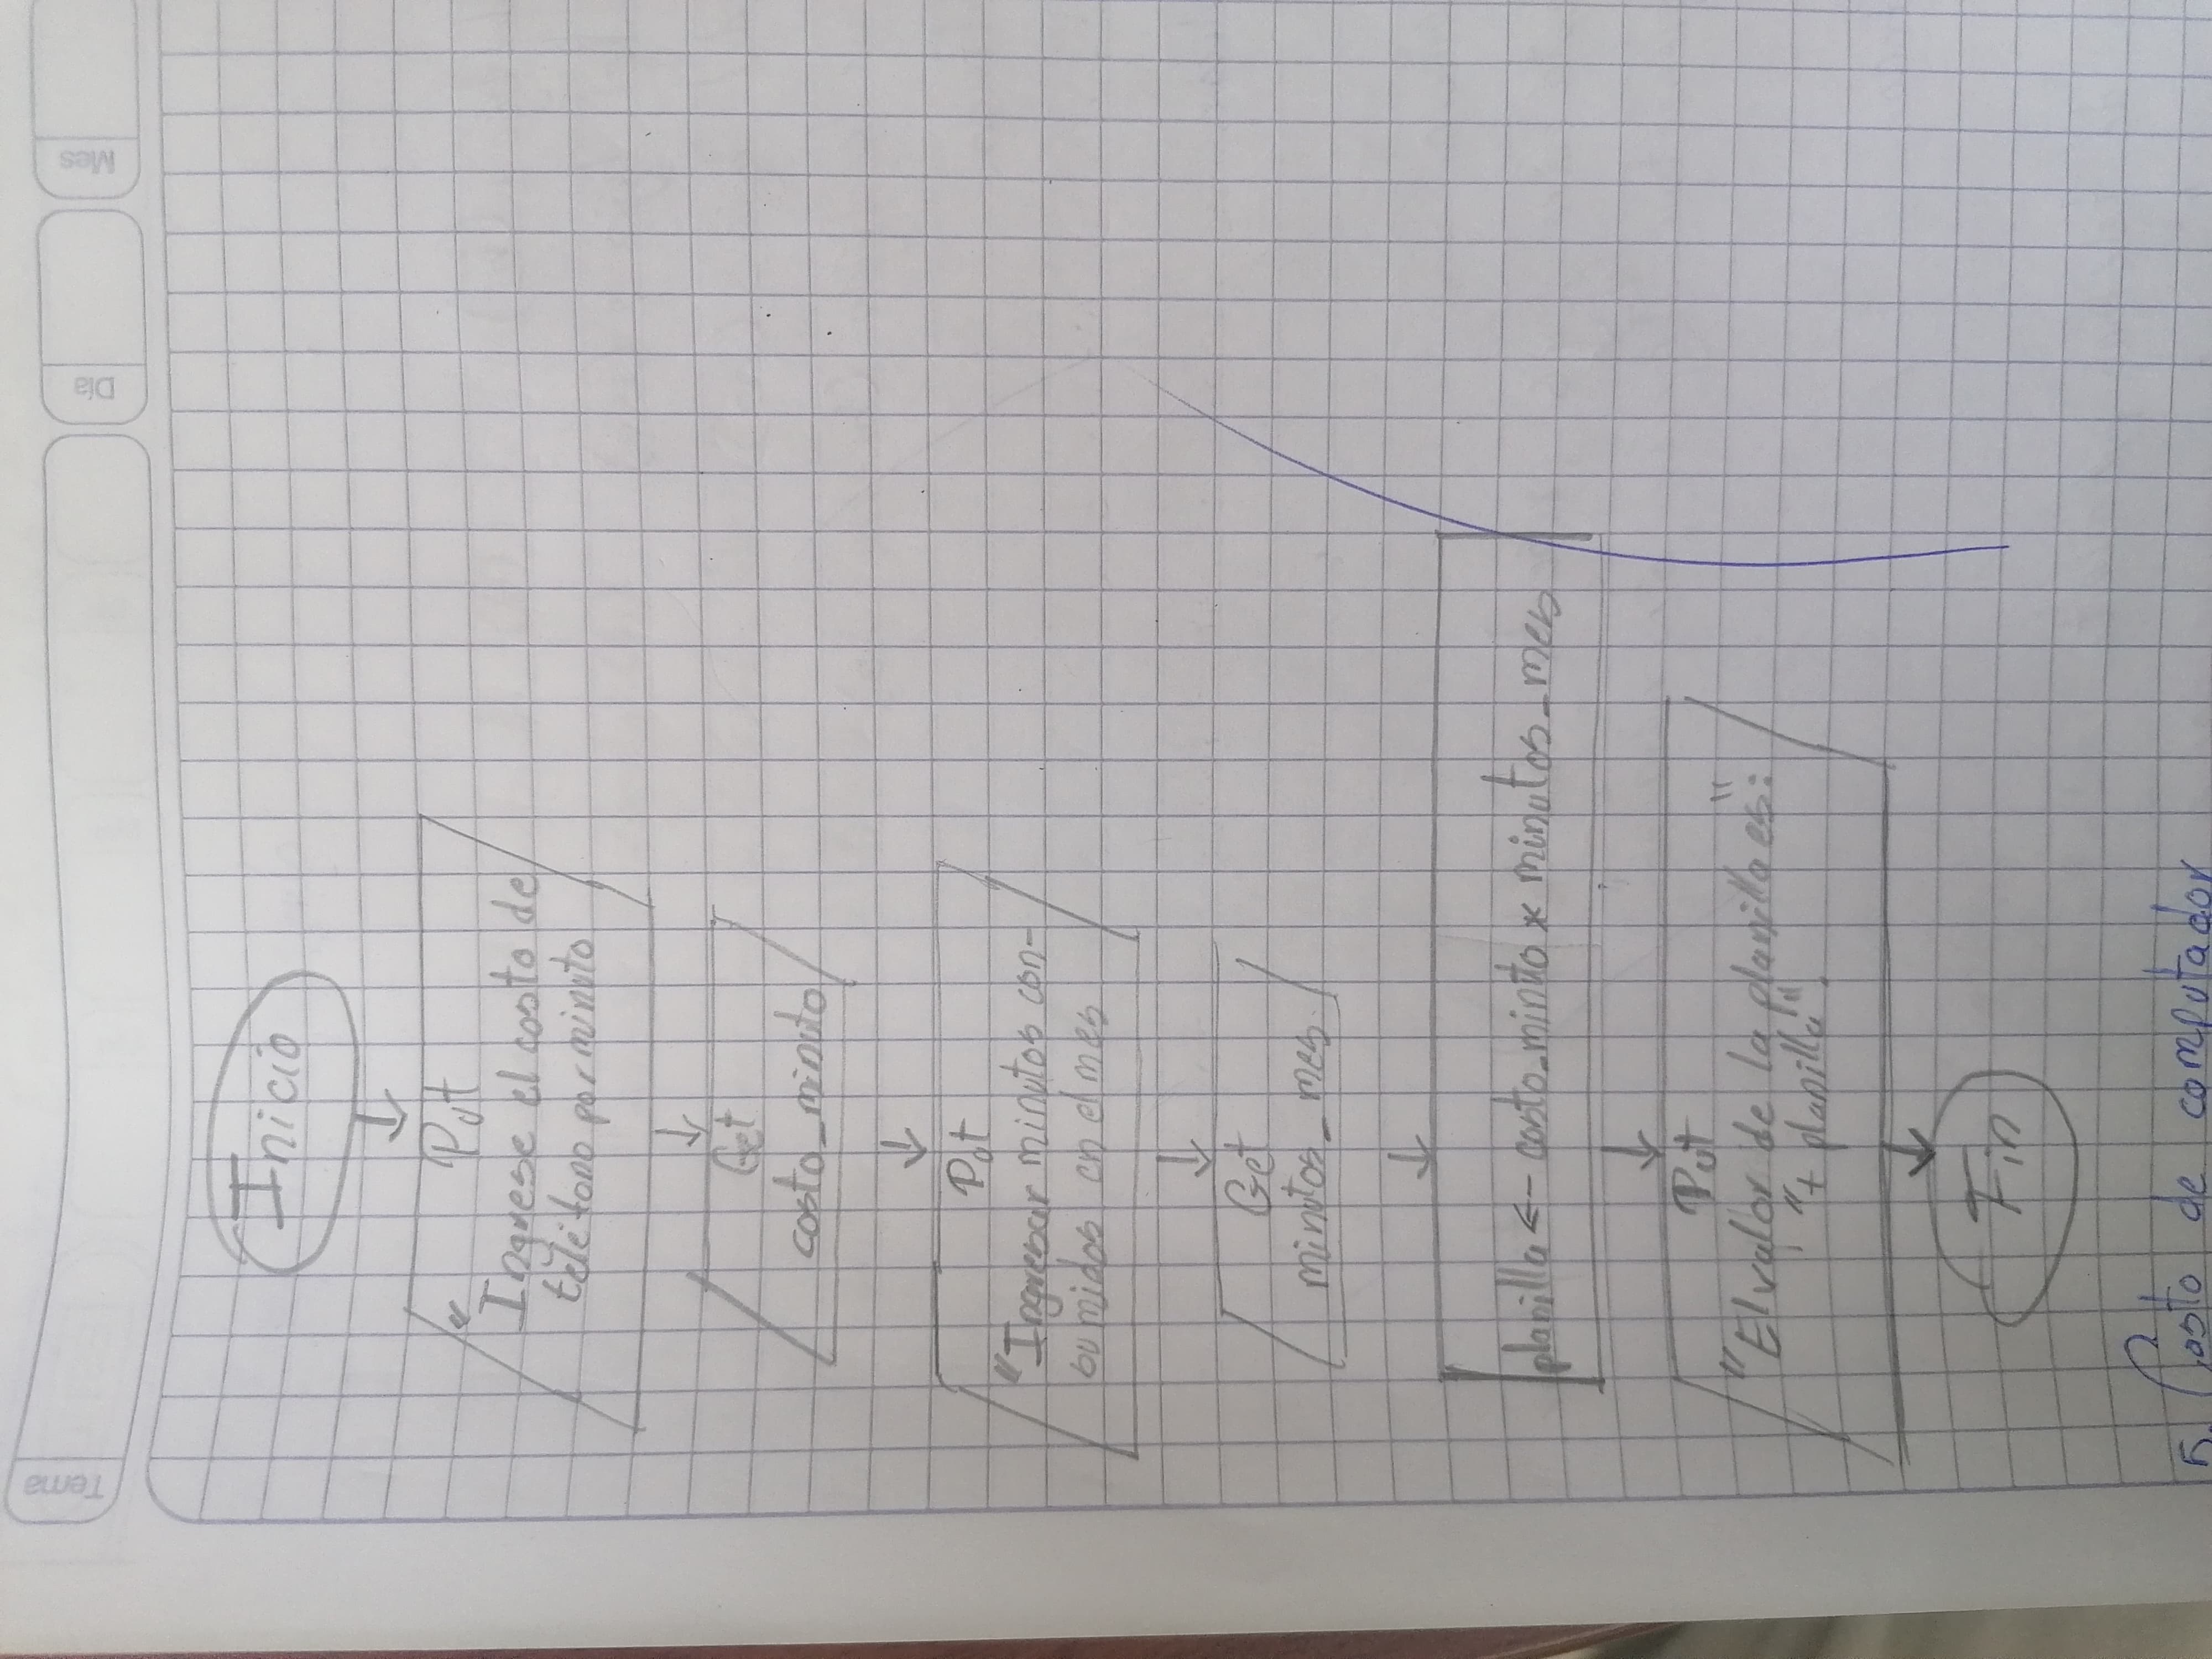 Tema
Día
Mes
Inicio
Put
"Ingrese el costo de
teléfono por minuto
Get
costo_minuto
Put
"Ingresar minutos con-
sumidos en el mes
Get
minutos_mes.
planilla <- costo_minuto * minutos_mes
Put
"El valor de la planilla es:"
"+ planilla".
Fin
5. Costo de computador